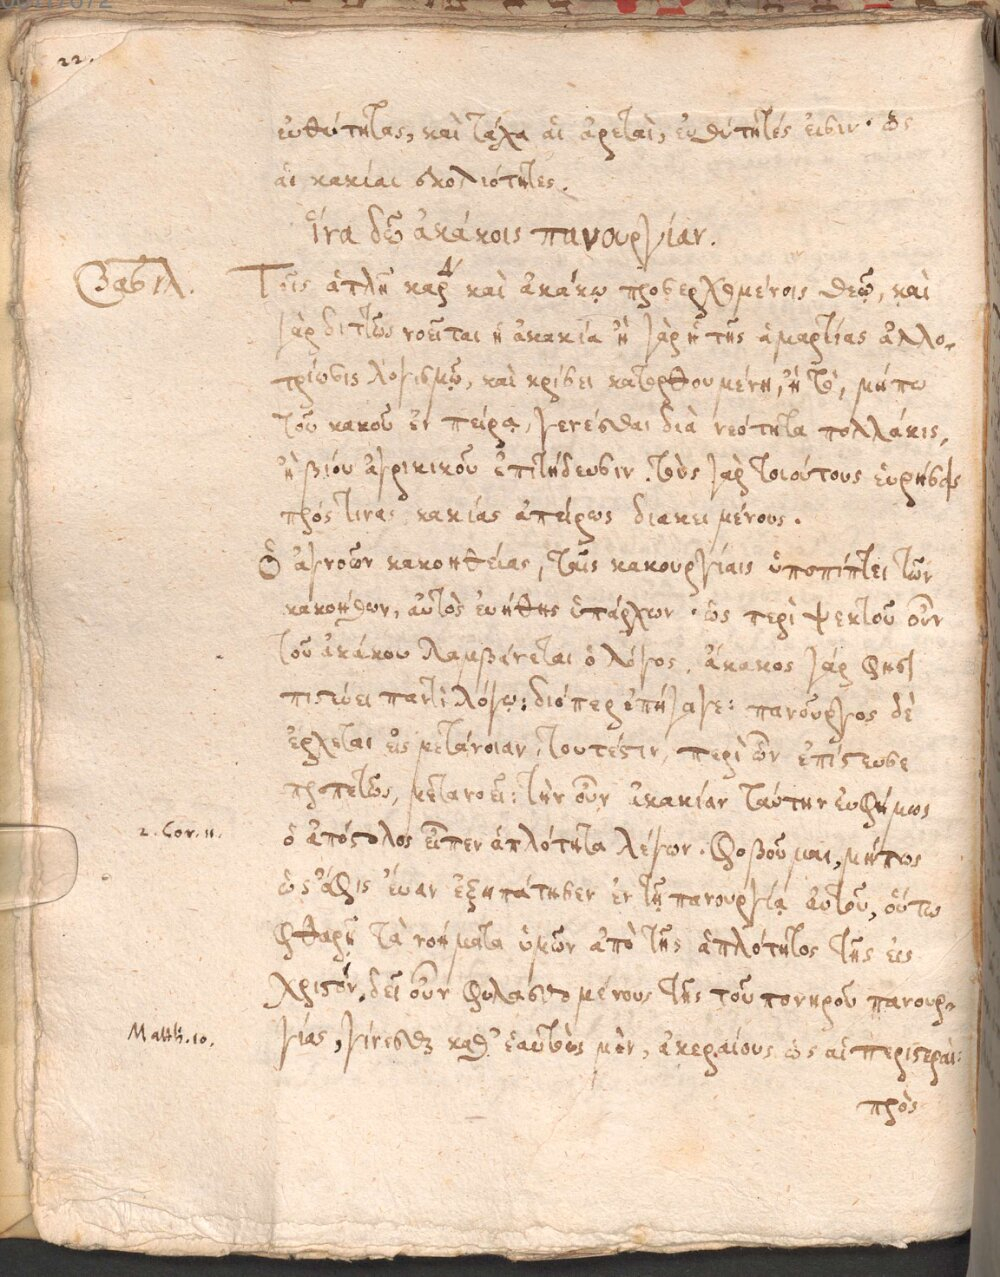 22.
εὐθύτητας, καὶ τάχα αἱ ἀρεταὶ, εὐθύτητές εἰσιν· ὡς
αἱ κακίαι σκολιότητες.
ἵνα δῶ ἀκάκοις πανουργίαν.
Βασιλ. Τοῖς ἁπλῇ καρδ καὶ ἀκάκῳ προσερχομένοις θεῷ, καὶ
γὰρ διττῶς νοεῖται ἡ ἀκακία ἢ γὰρ ἡ τῆς ἁμαρτίας ἀλλο-
τρίωσις λογισμῷ, καὶ κρίσει κατορθουμένη, ἢ τὸ, μήπω
τοῦ κακοῦ ἐν πείρᾳ, γενέσθαι διὰ νεότητα πολλάκις,
ἢ βίου ἀγρικικοῦ ἐπιτήδευσιν. τοὺς γὰρ τοιούτους εὑρήσεις
πρός τινας κακίας ἀπείρως διακειμένους.
Ὁ ἀγνοῶν κακοηθείας, ταῖς κακουργίαις ὑποπίπτει τῶν
κακοήθων, αὐτὸς εὐήθης ὑπάρχων· ὡς περὶ ψεκτοῦ οὖν
τοῦ ἀκάκου λαμβάνεται ὁ λόγος, ἄκακος γάρ φησι
πιστεύει παντὶ λόγῳ: διόπερ ἐπήγαγε: πανοῦργος δὲ
ἔρχεται εἰς μετάνοιαν, τουτέστιν, περὶ ὧν ἐπίστευσε
προπετῶς, μετανοεῖ: τὴν οὖν ἀκακίαν ταύτην εὐφήμως
2. Cor. 11. ὁ ἀπόστολος εἶπεν ἁπλότητα λέγων· φοβοῦμαι, μήπως
ὡς ὄφις εὔαν ἐξηπάτησεν ἐν τῇ πανουργίᾳ αὐτοῦ, οὕτω
φθαρῇ τὰ νοήματα ὑμῶν ἀπὸ τῆς ἁπλότητος τῆς εἰς
χριστόν, δεῖ οὖν φυλασσομένους τῆς τοῦ πονηροῦ πανουρ-
Matth. 10. γίας, γίνεσθαι καθ' ἑαυτοὺς μὲν, ἀκεραίους ὡς αἱ περιστεραί:
πρὸς